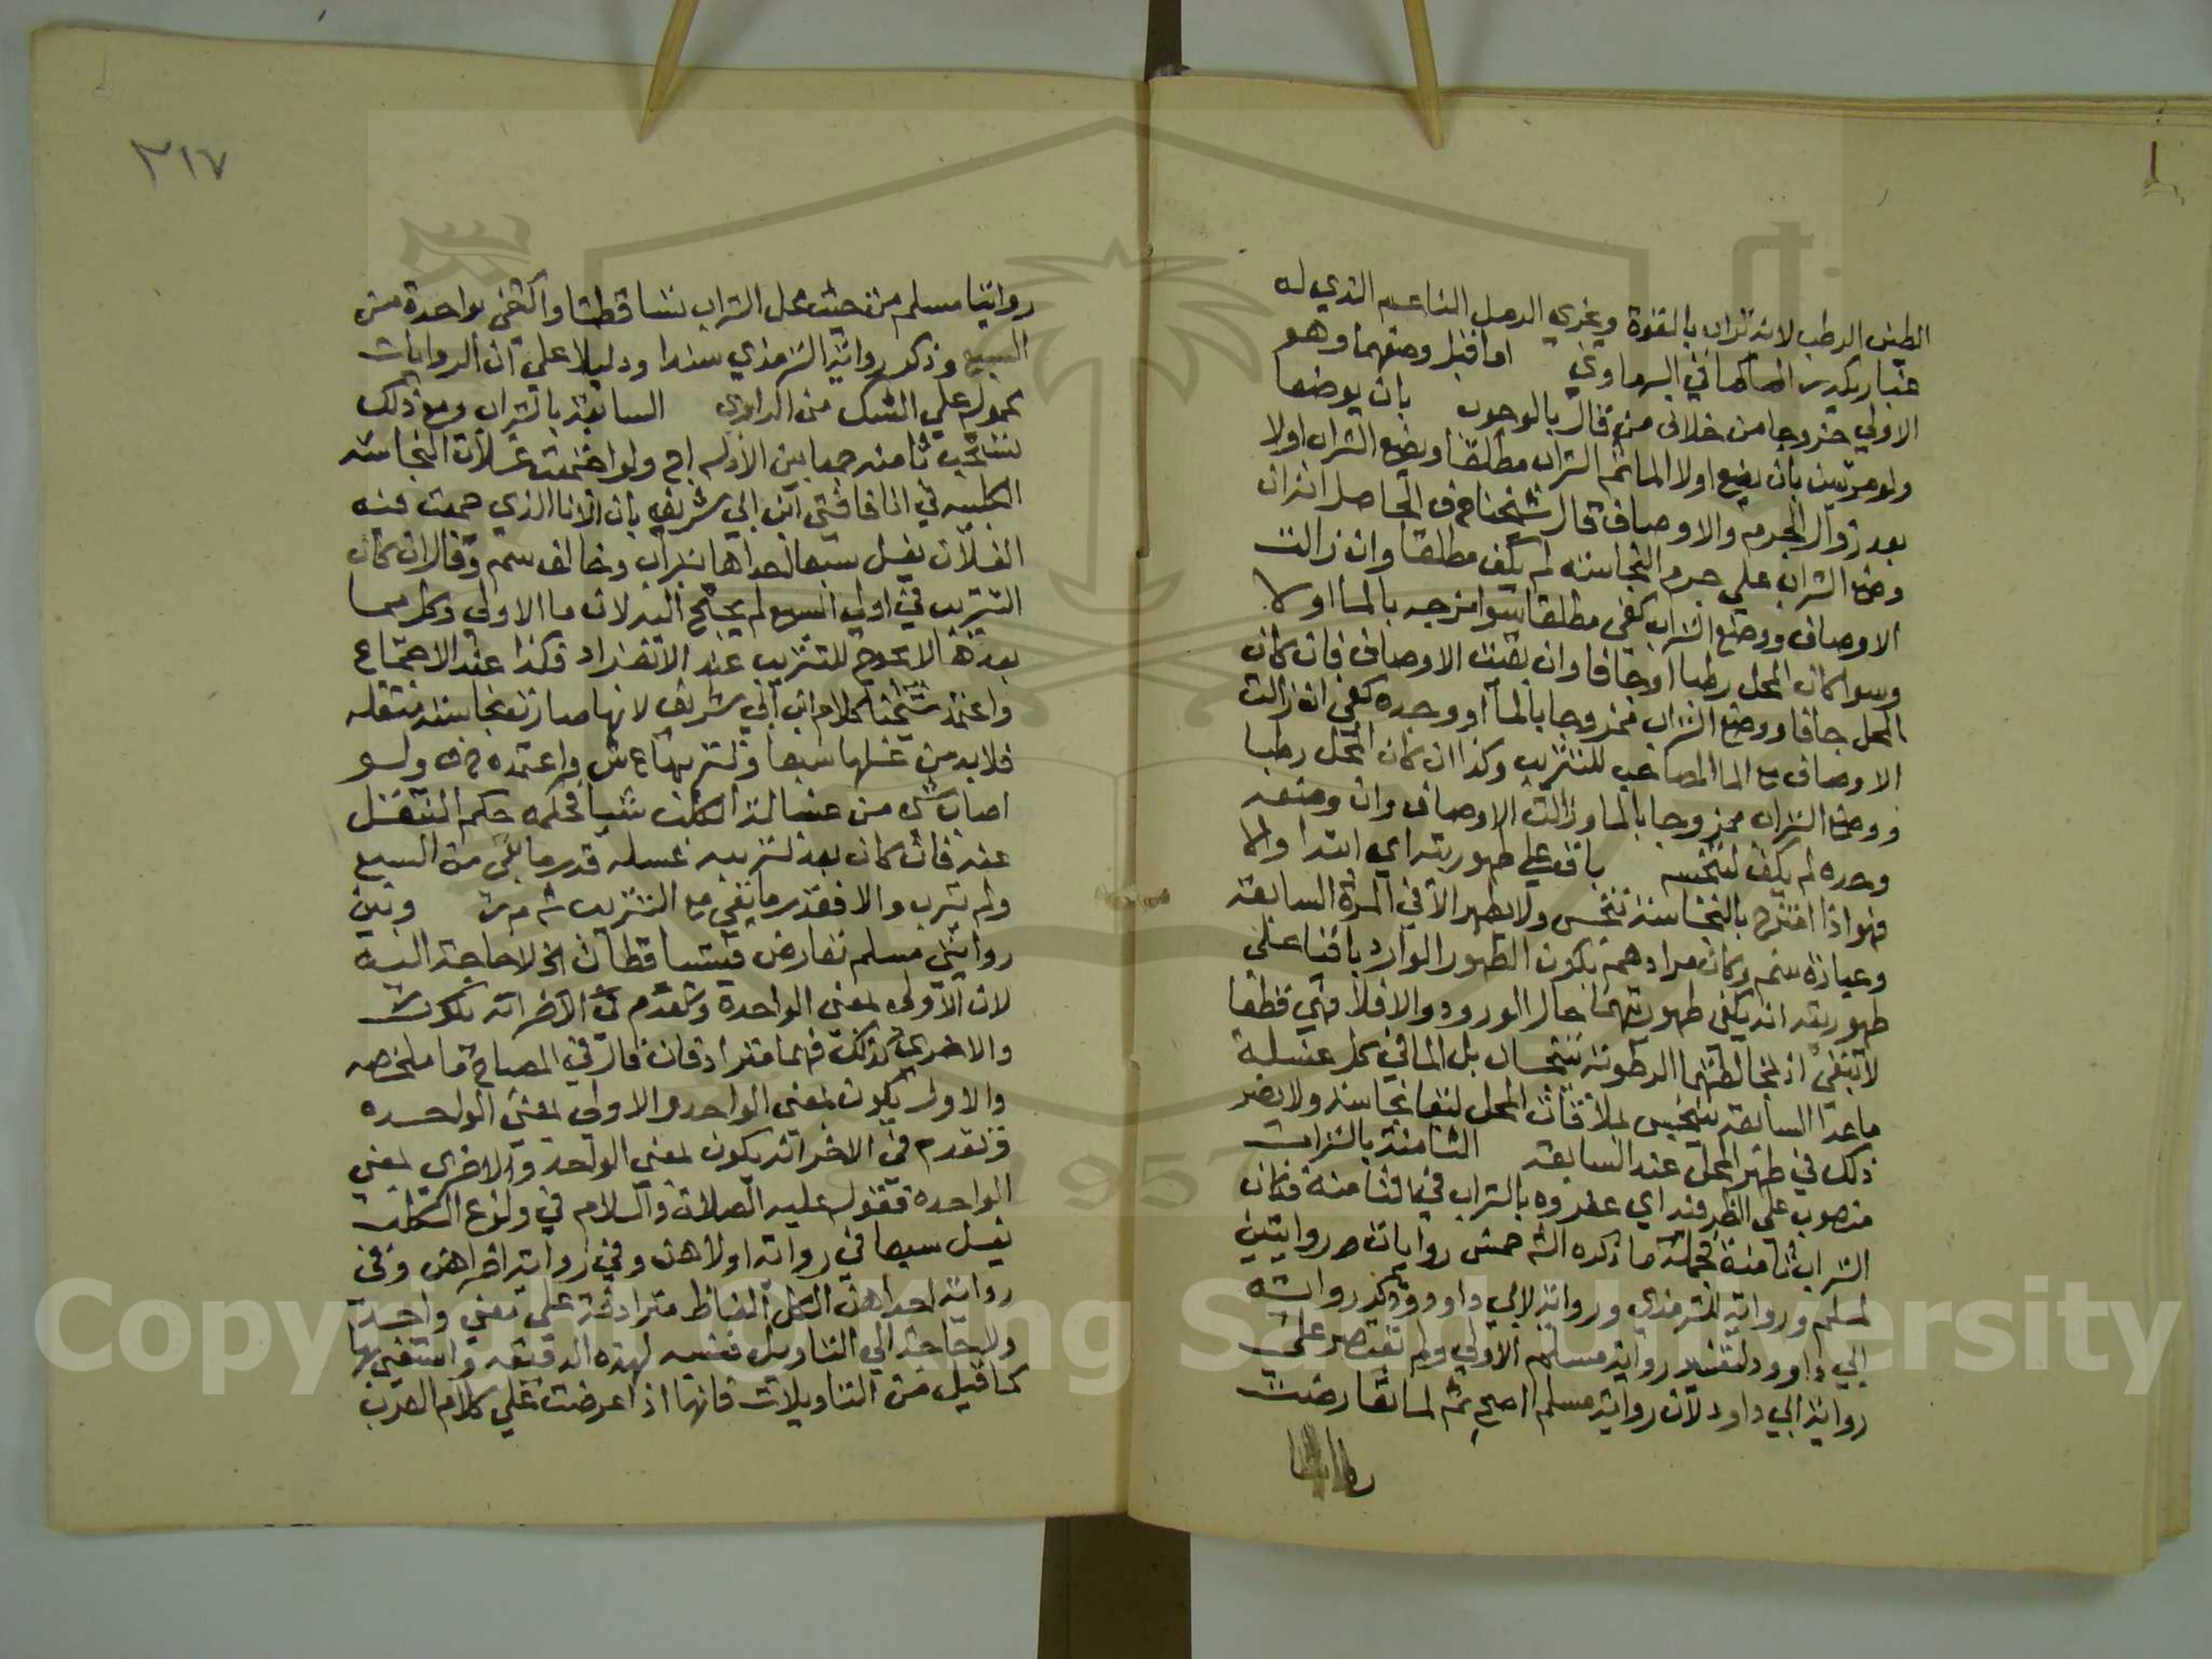 الطين الرطب لانه تراب بالقوة ويجزي الرمل الناعم الذي له
غبار يكدر الماء كما في البرماوي اما قبل وضعهما وهو
الاولي خروجا من خلاف من قال بالوجوب بان يوضعا
ولو مرتبين بان يضع اولا الماء ثم التراب مطلقا او يضع التراب اولا
بعد زوال الجرم والاوصاف قال شيخنا ح ف الحاصل انه ان
وضع التراب علي جرم النجاسة لم يكف مطلقا وان زالت
الاوصاف ووضع التراب كفي مطلقا سوا مزجه بالماء اولا
وسوا كان المحل رطبا او جافا وان بقيت الاوصاف فان كان
المحل جافا ووضع التراب ممزوجا بالماء او وحده كفي ان زالت
الاوصاف مع الماء المصاحب للتتريب وكذا ان كان المحل رطبا
ووضع التراب ممزوجا بالماء وزالت الاوصاف وان وضعه
وحده لم يكف لتنجسه باق علي طهوريته اي ابتدا والا
فهو اذا امتزج بالنجاسة تنجس ولا يطهر الا في المرة السابعة
وعبارة سم وكان مرادهم بكون الطهور الوارد باقيا علي
طهوريته انه يكفي طهوريتهما حال الورود والا فلا فهي قطعا
لا تبقي اذ لمخالطتهما الرطوبة يتنجسان بل الماء في كل غسلة
ما عدا السابعة يتنجس بملاقاة المحل لبقا نجاسته ولا يضر
ذلك في طهر المحل عند السابعة الثامنة بالتراب
منصوب علي الظرفية اي عفروه بالتراب في الثامنة فكان
التراب ثامنة فجملة ما ذكره الش خمس روايات روايتين
لمسلم ورواية للترمذي ورواية لابي داوود وذكر رواية
ابي داوود لتقييد رواية مسلم الاولي ولم يقتصر علي
رواية ابي داود لان رواية مسلم اصح ثم لما تعارضت
روايتا
٣١٧
روايتا مسلم من حيث محل التراب تساقطتا واكتفي بواحدة من
السبع وذكر رواية الترمذي سندا ودليلا علي ان الروايات
محمول علي الشك من الراوي السابعة بالتراب ومع ذلك
تستحب ثامنة جمعا بين الادلة اج ولو اجتمعت غسلات النجاسة
الكلبية في انا فافتي ابن ابي شريف بان الانا الذي جمعت فيه
الغسلات يغسل سبعا احداها بتراب وخالف سم وقال ان كان
التتريب في اولي السبع لم يحتج اليه لان ماء الاولي وكل مما
بعدها لا يحوج للتتريب عند الانفراد فكذا عند الاجتماع
واعتمد شيخنا كلام ابن ابي شريف لانها صارت نجاسة مستقلة
فلا بد من غسلها سبعا وتتريبها ع ش واعتمده ح ف ولو
اصاب شي من غسالة الكلب شيا فحكمه حكم المنتقل
عنه فان كان بعد تتريبه غسله قدر ما بقي من السبع
ولم يترب والا فقدر ما بقي مع التتريب ش م ر وبين
روايتي مسلم تعارض فيتساقطان الخ لا حاجة اليه
لان الاولي بمعني الواحدة وتقدم في الاخر انه يكون
والاخري كذلك فهما مترادفان قال في المصباح ما ملخصه
والاول يكون بمعني الواحد والاولي بمعني الواحدة
وتقدم في الاخر انه يكون بمعني الواحد والاخري بمعني
الواحدة فقوله عليه الصلاة والسلام في ولوغ الكلب
يغسل سبعا في رواية اولاهن وفي رواية اخراهن وفي
رواية احداهن الكل الفاظ مترادفة علي معني واحد
ولا حاجة الي التاويل فتنبه لهذه الدقيقة واستغني بها
كما قيل من التاويلات فانها اذا عرضت علي كلام العرب